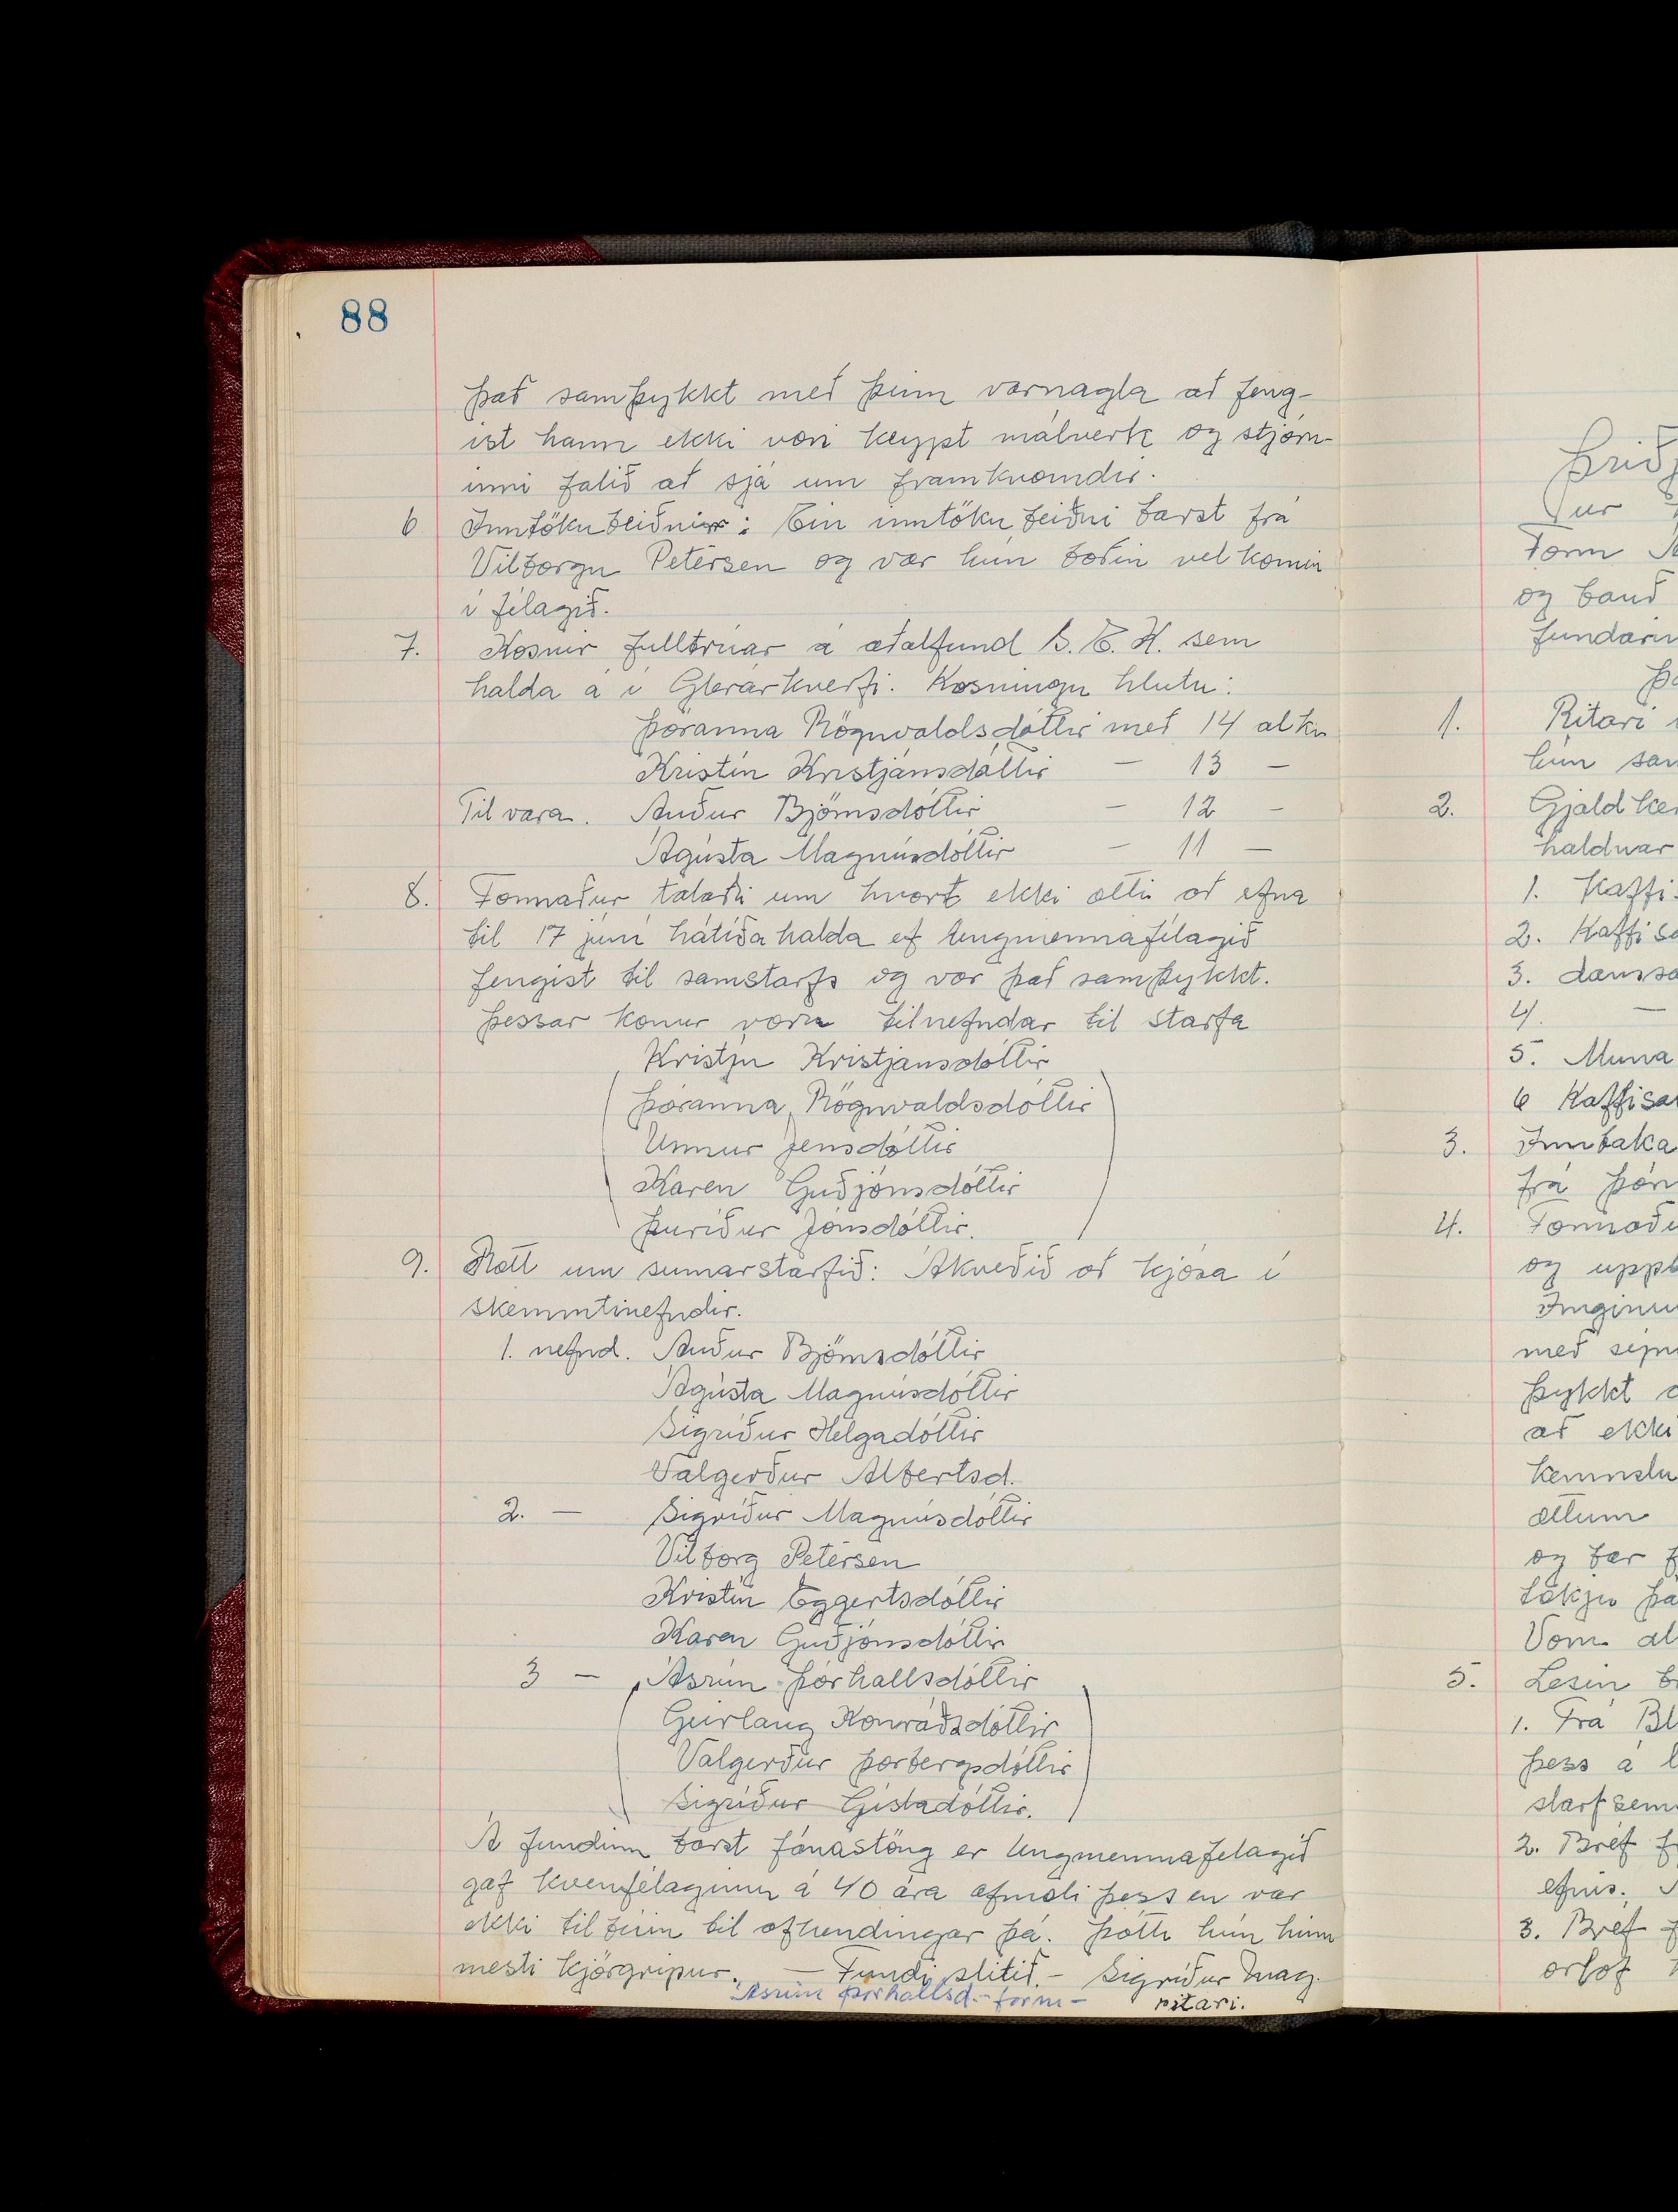 88
það samþykkt með þeim varnagla að feng-
ist hann ekki væri keypt málverk og stjórn-
inni falið að sjá um framkvæmdir.
6. Inntökubeiðnir: Ein inntöku beiðni barst frá
Vilborgu Petersen og var hún boðin vel komin
í félagið.
7. Kosnir fulltrúar á aðalfund S.B.K. sem
halda á í Glerárhverfi. Kosningu hlutu:
Þóranna Rögnvaldsdóttir með 14 atkv
Kristín Kristjánsdóttir — 13 —
Til vara. Auður Björnsdóttir — 12 —
Ágústa Magnúsdóttir — 11 —
8. Formaður talaði um hvort ekki ætti að efna
til 17 júní hátíða halda ef Ungmennafélagið
fengist til samstarfs og var það samþykkt.
Þessar konur voru tilnefndar til starfa
Kristín Kristjánsdóttir
Þóranna Rögnvaldsdóttir
Unnur Jensdóttir
Karen Guðjónsdóttir
Þuríður Jónsdóttir.
9. Rætt um sumarstarfið: Ákveðið að kjósa í
skemmtinefndir.
1. nefnd. Auður Björnsdóttir
Ágústa Magnúsdóttir
Sigríður Helgadóttir
Valgerður Albertsd.
2. — Sigríður Magnúsdóttir
Vilborg Petersen
Kristín Eggertsdóttir
Karen Guðjónsdóttir
3 — Ásrún Þórhallsdóttir
Geirlaug Konráðsdóttir
Valgerður Þorbergsdóttir
Sigríður Gísladóttir.
Á fundinn barst fánastöng er Ungmennafelagið
gaf kvenfélaginu á 40 ára afmæli þess en var
ekki tilbúin til afhendingar þá. Þótti hún hinn
mesti kjörgripur. — Fundi slitið. — Sigríður Mag.
Ásrún Þórhallsd. - form - ritari.
Þriðj
Tur
Form
og band
fundarin
1. Ritari
hún sam
2. Gjaldke
haldnar
1. Kaffi
2. Kaffisa
3. danssa
4. —
5. Muna
6 Kaffisa
3. Innbaka
frá Þór
4. Formaðu
og uppb
með
þykkt
að ekki
kennslu
öllum
og þar
þa
Vom al
5. Lesin b
1. Frá Bl
þess á
starfsem
2. Bréf f
efnis.
3. Bréf
orlof